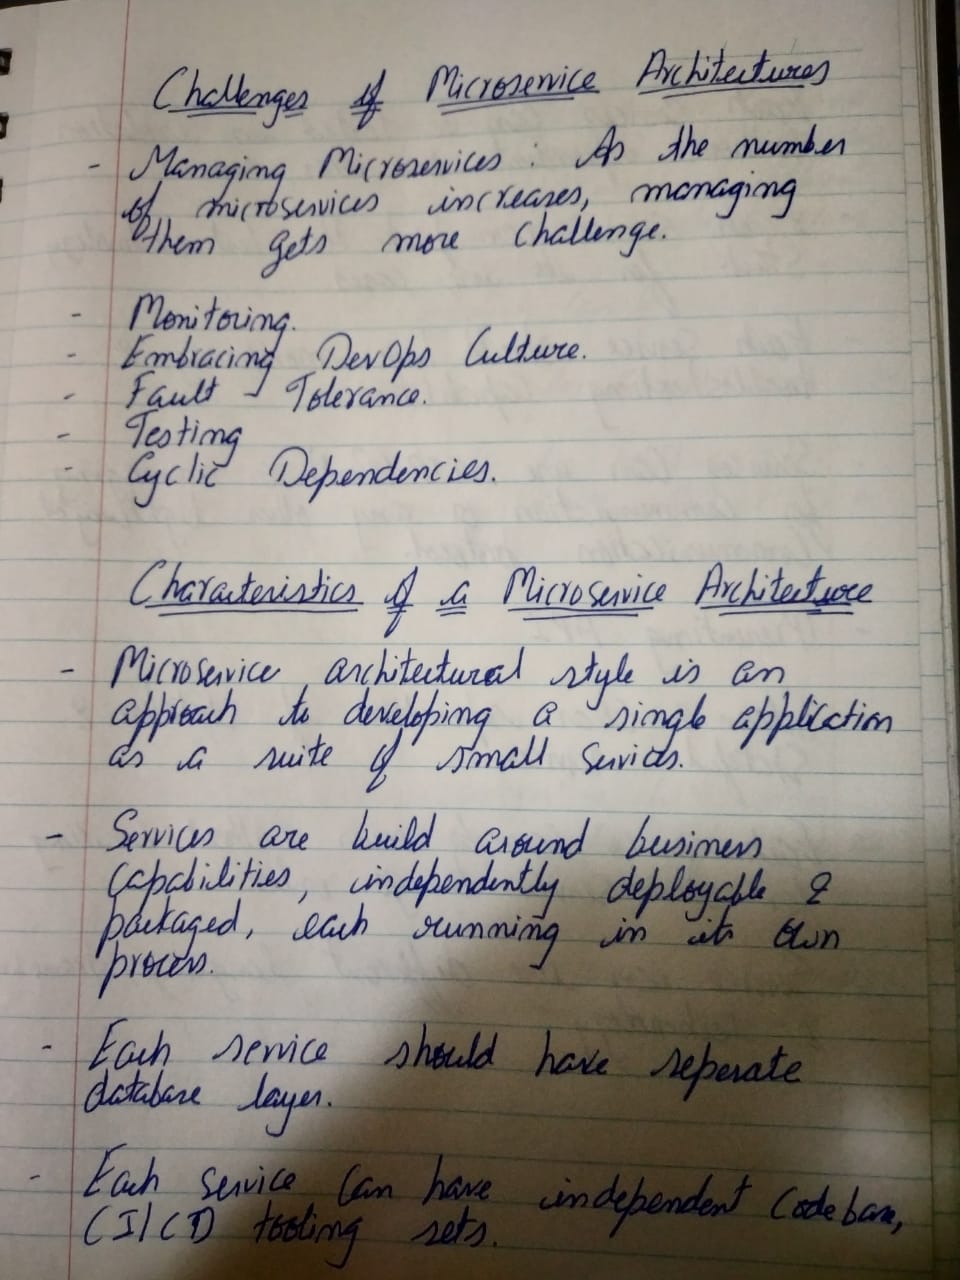 Challenges of Microservice Architectures
- Managing Microservices : As the number
of microservices increases, managing
them gets more challenge.
- Monitoring.
- Embracing DevOps Culture.
- Fault - Tolerance.
- Testing
- Cyclic Dependencies.
Characteristics of a Microservice Architecture
- Microservice architectural style is an
approach to developing a single application
as a suite of small services.
- Services are build around business
capabilities, independently deployable &
packaged, each running in its own
process.
- Each service should have seperate
database layer.
- Each service can have independent Codebase,
CI/CD tooling sets.